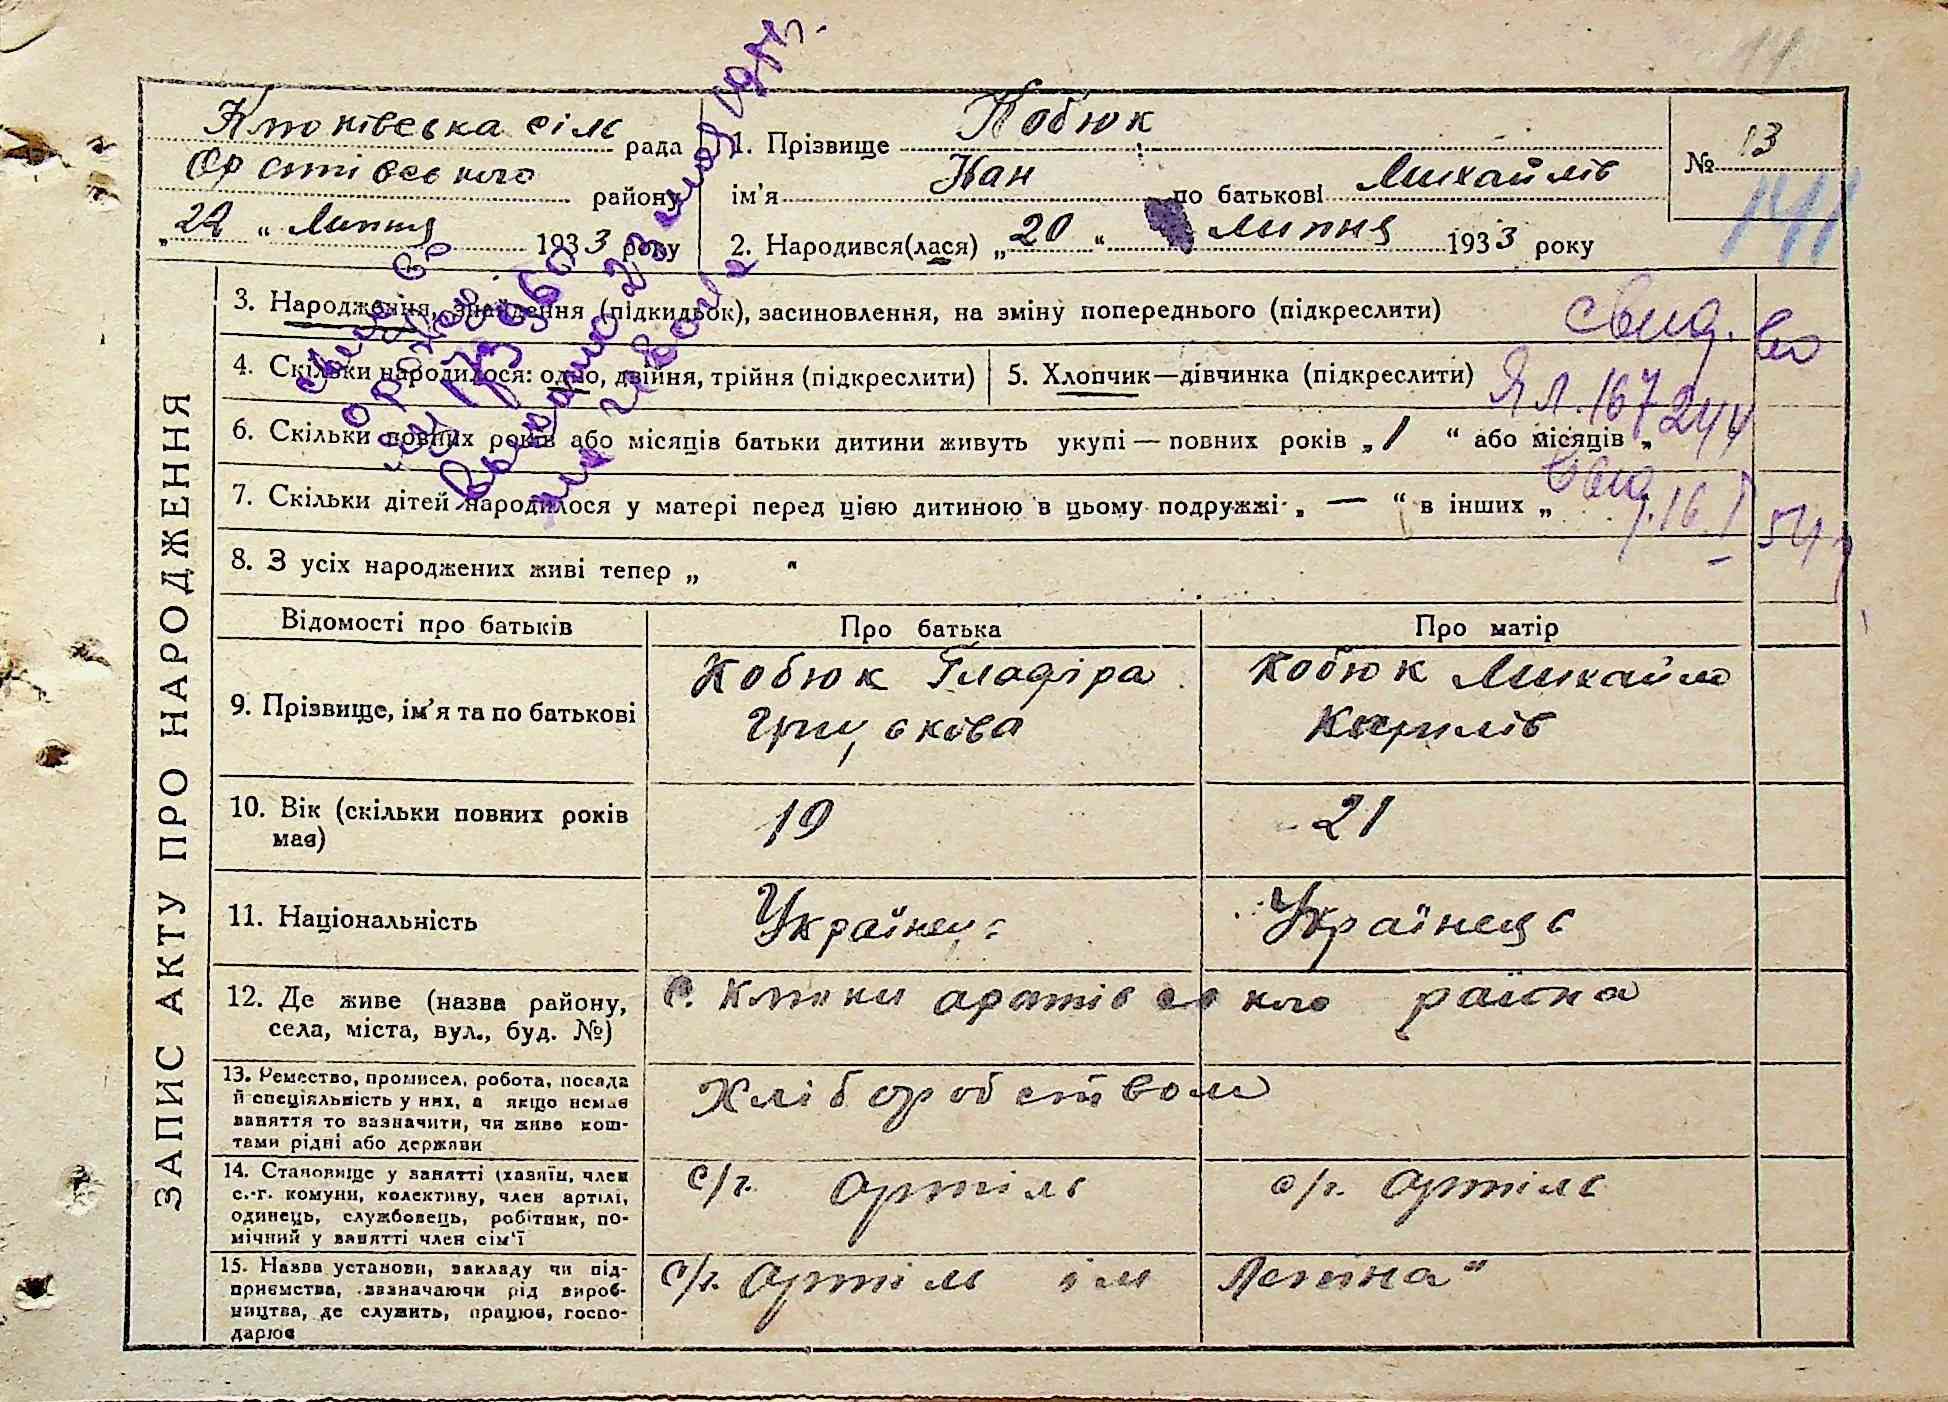 14
Клюківська сіль рада
Оратівського району
„ 22 “ Липня 1933 року
1. Прізвище Кобюк
ім’я Іван по батькові Михайлів
2. Народився(лася) „ 20 “ липня 1933 року
№ 13
141
ЗАПИС АКТУ ПРО НАРОДЖЕННЯ
3. Народження, знайдення (підкидьок), засиновлення, на зміну попереднього (підкреслити)
свид. во
4. Скільки народилося: одно, двійня, трійня (підкреслити)
5. Хлопчик—дівчинка (підкреслити)
ЯЛ. 167244
6. Скільки повних років або місяців батьки дитини живуть укупі — повних років „ 1 “ або місяців „
свид
7. Скільки дітей народилося у матері перед цією дитиною в цьому подружжі „ — “ в інших „
16 I 54
8. З усіх народжених живі тепер „ “
Відомості про батьків
Про батька
Про матір
9. Прізвище, ім’я та по батькові
Кобюк Гладіра
Грицькова
Кобюк Михайло
Кирилів
10. Вік (скільки повних років
має)
19
21
11. Національність
Українець
Українець
12. Де живе (назва району,
села, міста, вул., буд. №)
с. Клюки аратівського района
13. Ремество, промисел, робота, посада
й спеціяльність у них, а якщо немає
заняття то зазначити, чи живе кош-
тами рідні або держави
Хліборобством
14. Становище у занятті (хазяїн, член
с.-г. комуни, колективу, член артілі,
одинець, службовець, робітник, по-
мічний у занятті член сім’ї
с/г. артіль
с/г. артіль
15. Назва установи, закладу чи під-
приємства, зазначаючи рід вироб-
ництва, де служить, працює, госпо-
дарює
с/г. артіль ім Леніна“